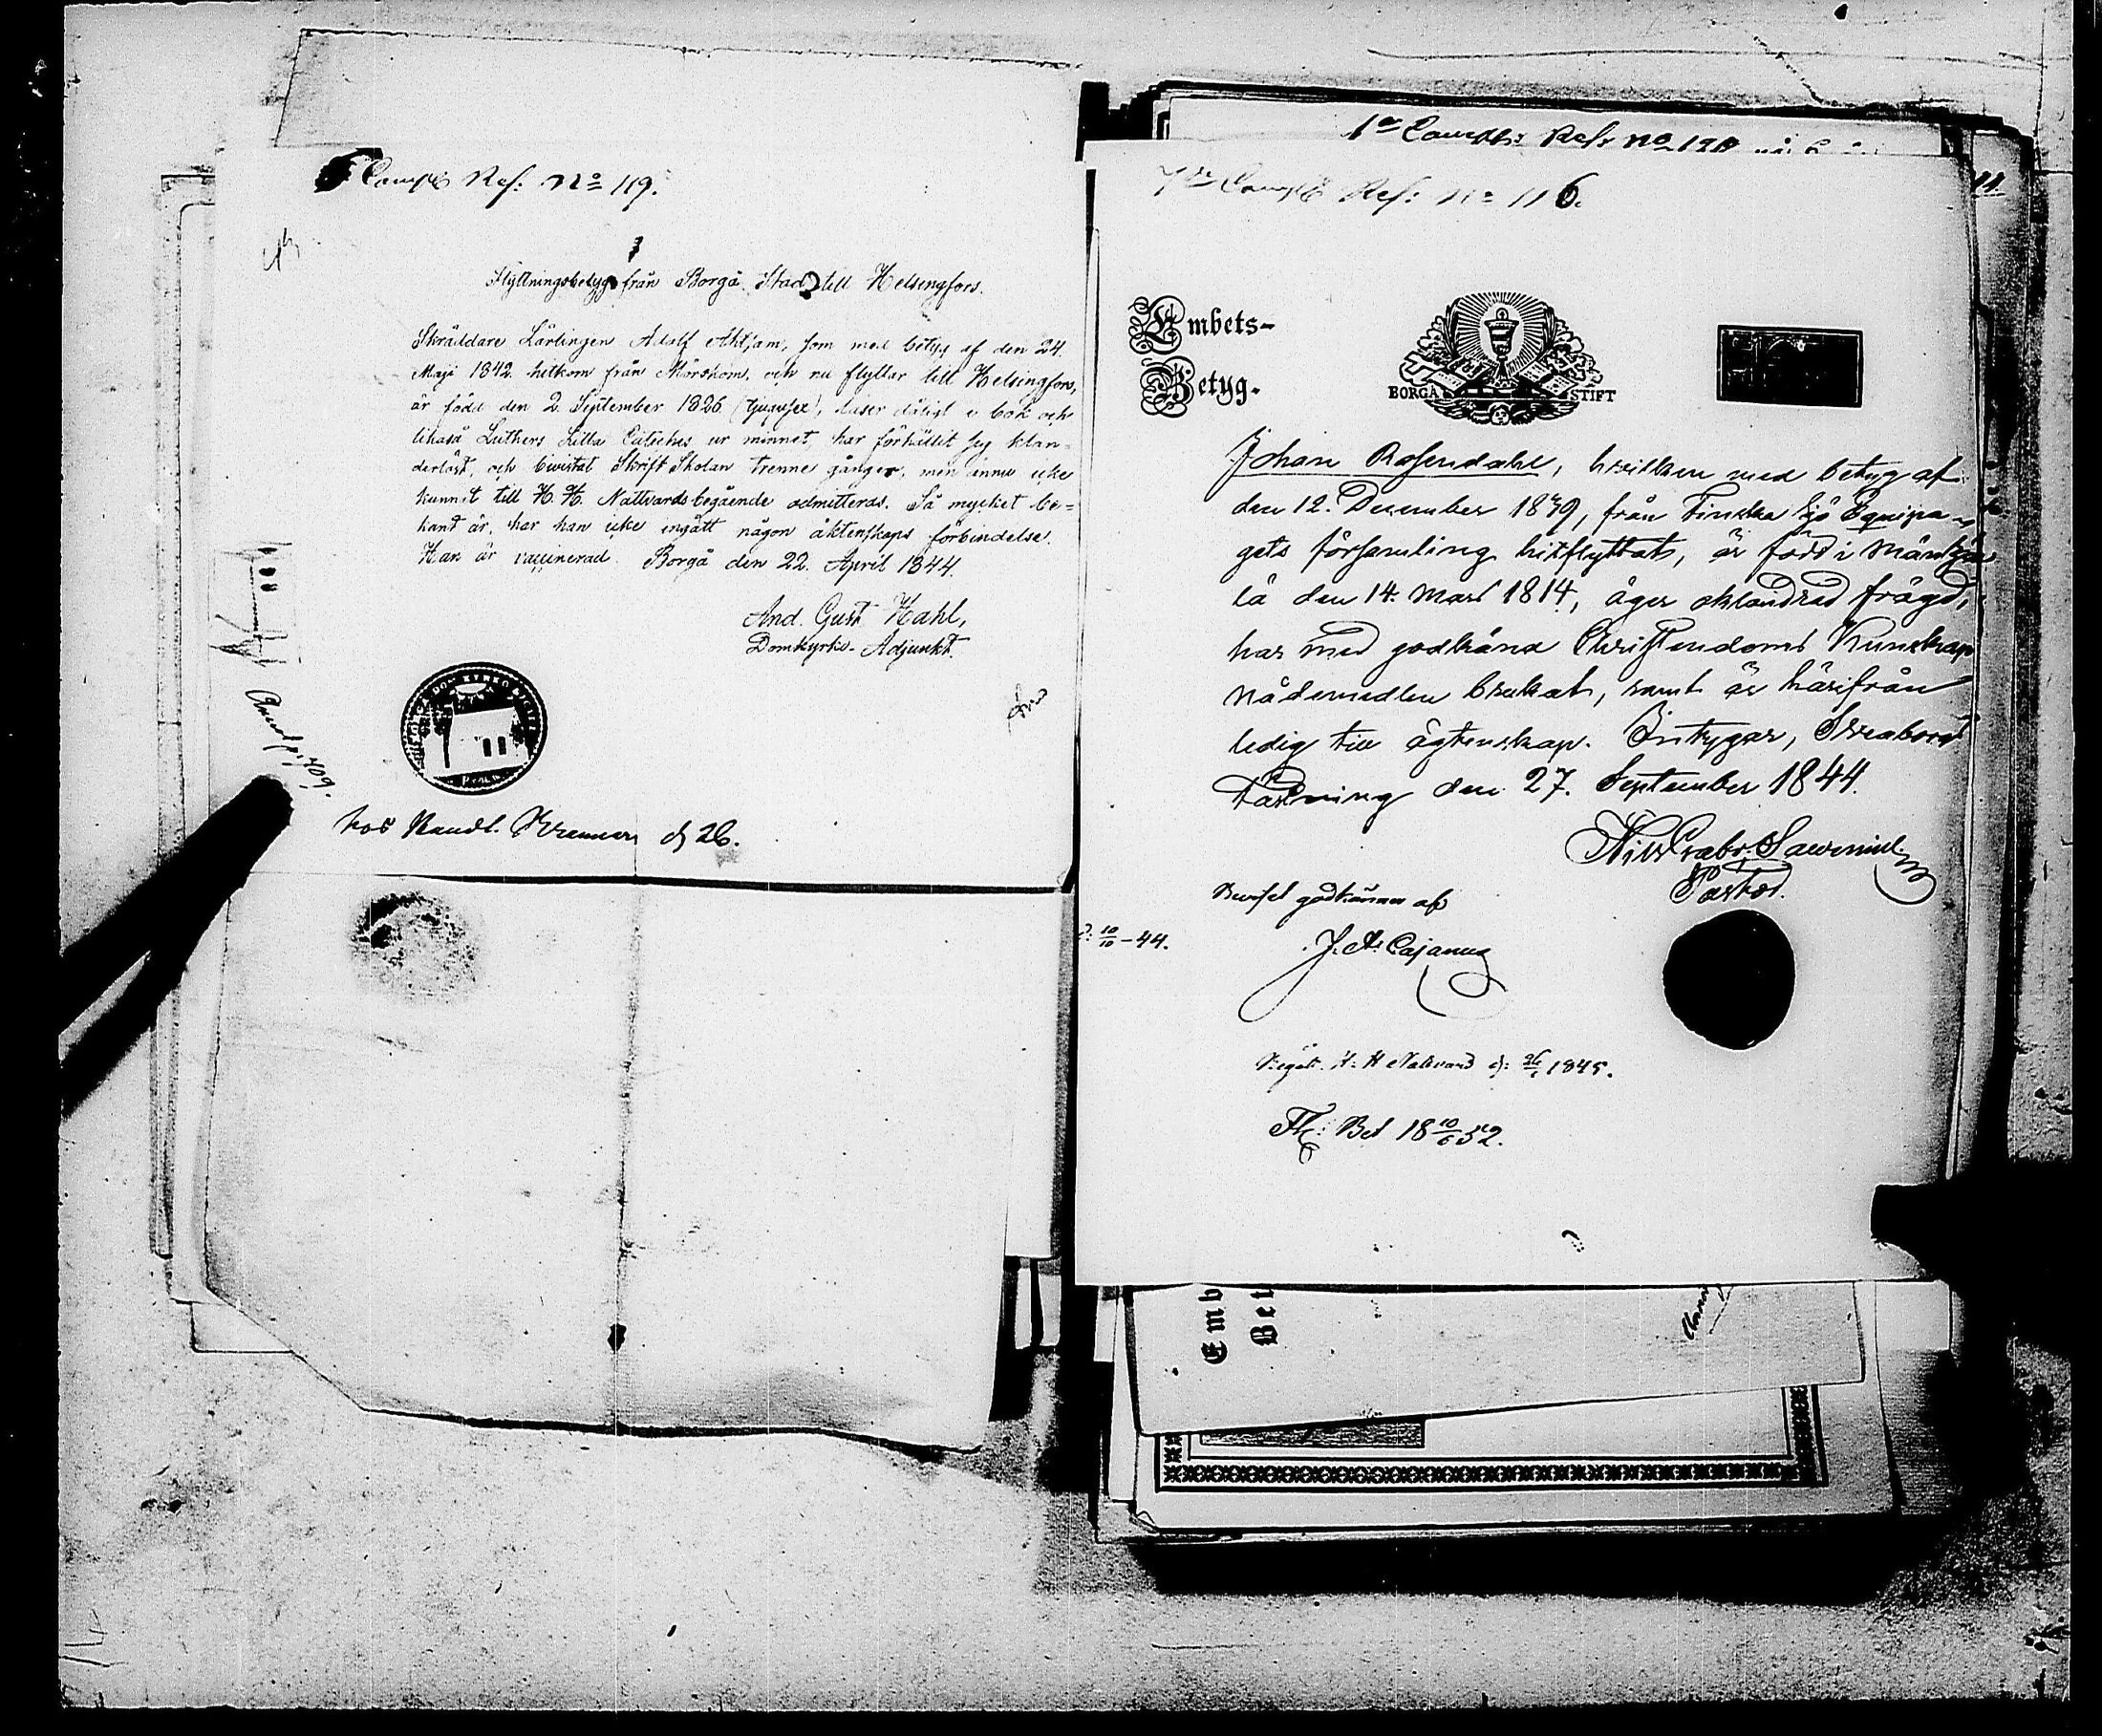 Comp Ref: No 119.
Flyttningsbetyg från Borgå Stad till Helsingfors.
Skräddare Lärlingen Adolf Ahtjam, som med betyg af den 24
Maji 1842 hitkom från Mörskom, och nu flyttar till Helsingfors,
är född den 2 September 1826 (tjugusex), läser dåligt i bok och
likaså Luthers Lilla Cateches ur minnet, har förhållit sig klan-
derlöst, och bivistat Skrift Skolan trenne gånger, men ännu icke
kunnat till H. H. Nattvards begående admitteras. Så mycket be=
kant är, har han icke ingått någon äktenskaps förbindelse.
Han är vaccinerad. Borgå den 22 April 1844.
And. Gust. Hahl,
Domkyrko-Adjunkt.
409.
hos Handl. d 26.
1a Comp: Ref: No 120
7de Comp Ref: No 116.
Embets-
Betyg.
BORGÅ STIFT
Johan Rosendahl, hvilken med betyg af
den 12. December 1839, från Finska Sjö Equipa-
gets församling hitflyttat, är född i
lä den 14. Mars 1814, äger oklandrad frägd,
har med godkänd Christendoms Kunskap
nådemedlen brukat, samt är härifrån
ledig till ägtenskap. Intygar, Sveaborgs
Fästning den 27. September 1844.
Nils Gabr.
Pastor.
Beviset godkännes af
10/10-44.
J. A. Cajanus
Begått H: H Nattvard d: 1845.
Fl: Bet 18 10/6 52.
Emb
Bet